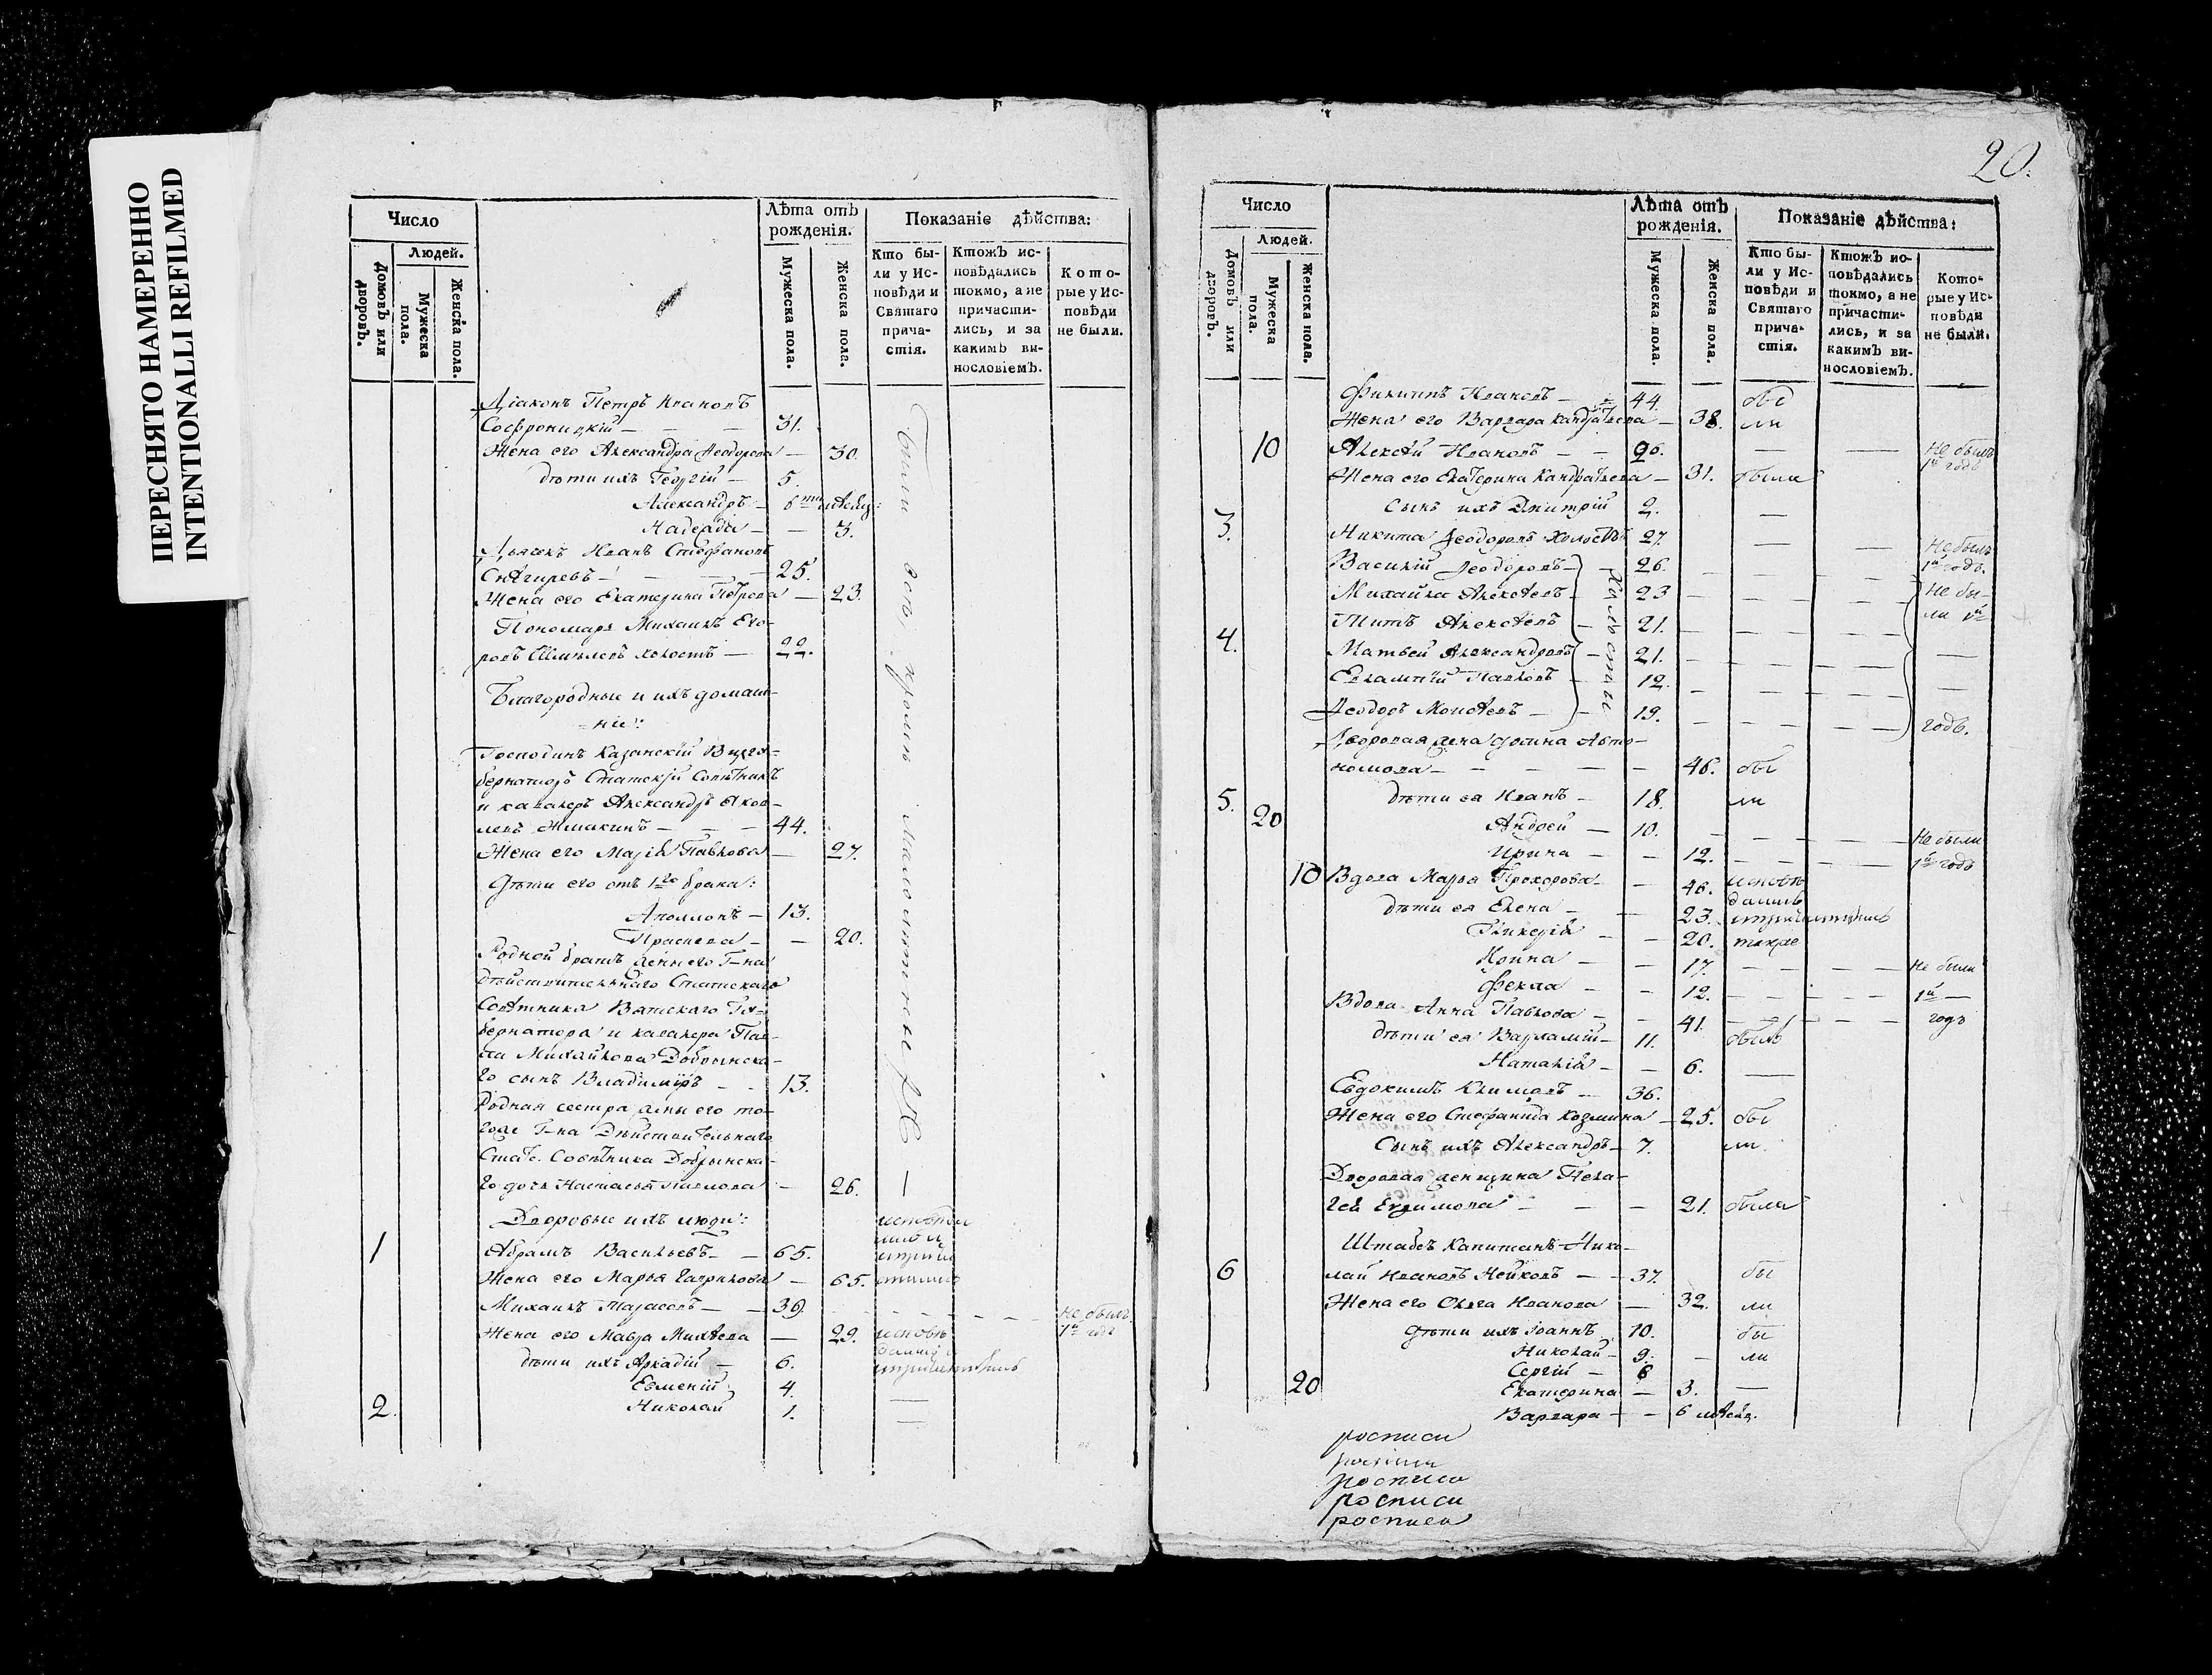 ПЕРЕСНЯТО НАМЕРЕННО
INTENTIONALLI REFILMED
Число
Людей.
Домовъ или дворовъ.
Мужеска пола.
Женска пола.
Лѣта отъ рожденія.
Мужеска пола.
Женска пола.
Показаніе дѣйства:
Кто бы-
ли у Ис-
повѣди и
Святаго
прича-
стія.
Ктожъ ис-
повѣдались
токмо, а не
причасти-
лись, и за
какимъ ви-
нословіемъ.
Кото-
рые у Ис-
повѣди
не были.
Діаконъ Петръ Ивановъ
Софроницкій — — — 31.
Жена его Александра Феодорова — 30.
дѣти ихъ Георгій — 5.
Александръ — 6ти
Надежда — — 3.
Дьячекъ Иванъ Стефановъ
Снѣгиревъ — — — 25.
Жена его Екатерина Петрова — 23.
Пономарь Михаилъ Его-
ровъ холостъ — 22.
Благородные и ихъ домаш-
-ніе:
Господинъ Казанскій Вицегу-
бернаторъ Статскій Совѣтникъ
и кавалеръ Александръ Яков-
левъ Жмакинъ — — — 44.
Жена его Марія Павлова — 27.
Дѣти его отъ 1го брака:
Аполлонъ — 13.
Прасковья — — 20.
Родной братъ жены его Г-на
Дѣйствительнаго Статскаго
Совѣтника Вятскаго Гу-
бернатора и кавалера Пав-
ла Михайлова Добрынска-
го сынъ Владиміръ — - 13.
Родная сестра жены его то-
гоже Г-на Дѣйствительнаго
Статс. Совѣтника Добрынска-
го дочь Настасья Павлова — 26. —
Дворовые ихъ люди:
1 Абрамъ Васильевъ — — 65.
Жена его Марья Гаврилова — 65.
Михаилъ Тарасовъ — — 39. — — — Не былъ
1й годъ
Жена его Мавра — 29.
дѣти ихъ Аркадій — 6.
Евменій 4. —
2. Николай 1. —
Были вси кромѣ малолѣтныхъ
20.
Число
Людей.
Домовъ или дворовъ.
Мужеска пола.
Женска пола.
Лѣта отъ рожденія.
Мужеска пола.
Женска пола.
Показаніе дѣйства:
Кто бы-
ли у Ис-
повѣди и
Святаго
прича-
стія.
Ктожъ ис-
повѣдались
токмо, а не
причасти-
лись, и за
какимъ ви-
нословіемъ.
Кото-
рые у Ис-
повѣди
не были.
Филиппъ Ивановъ — 44. бы
Жена его Варвара Кандратьева — 38. ли
10 Алексѣй Ивановъ — — — — Не былъ
1й годъ
Жена его Екатерина Кандратьева — 31. была
Сынъ ихъ Дмитрій 2. —
3. Никита Феодоровъ холостъ 27. — — Не былъ
1й годъ.
Василій Феодоровъ — 26.
Михайла Алексѣевъ — 23 Не бы-
ли 1й
Титъ Алексѣевъ — 21.
4. Матвей Александровъ — 21. —
Евлампій Павловъ — 12. —
Феодоръ Моисѣевъ — 19. годъ.
Холосты
Дворовая Авто-
номова — — — 46. бы
5. дѣти ея Иванъ — 18. ли
20 Андрей — 10. — — — Не были
Ирина — — 12. — — — 1й годъ
10 Вдова Марья Прохорова — — 46.
дѣти ея Елена — — 23.
Гликерія — — 20. также
Ирина — — 17. — — — Не были
Фекла — — 12. — — — 1й —
Вдова Анна Павлова — — 41. — — — годъ
дѣти ея Варлаамій — 11. былъ
Наталія — — 6. —
Евдокимъ Климовъ — 36.
Жена его Стефанида Козмина — 25. бы
Сынъ ихъ Александръ — 7. ли
Дворовая женщина Пела-
гея — — — 21. была
Штабсъ Капитанъ Нико-
6 лай Ивановъ Нейковъ — — 37. бы
Жена его Ольга Иванова — 32. ли
Дѣти ихъ Іоаннъ 10. бы
Николай — 9. — ли
Сергій — 6
20 Екатерина — 3. —
Варвара — — 6
росписи
росписи
росписи
росписи
росписи